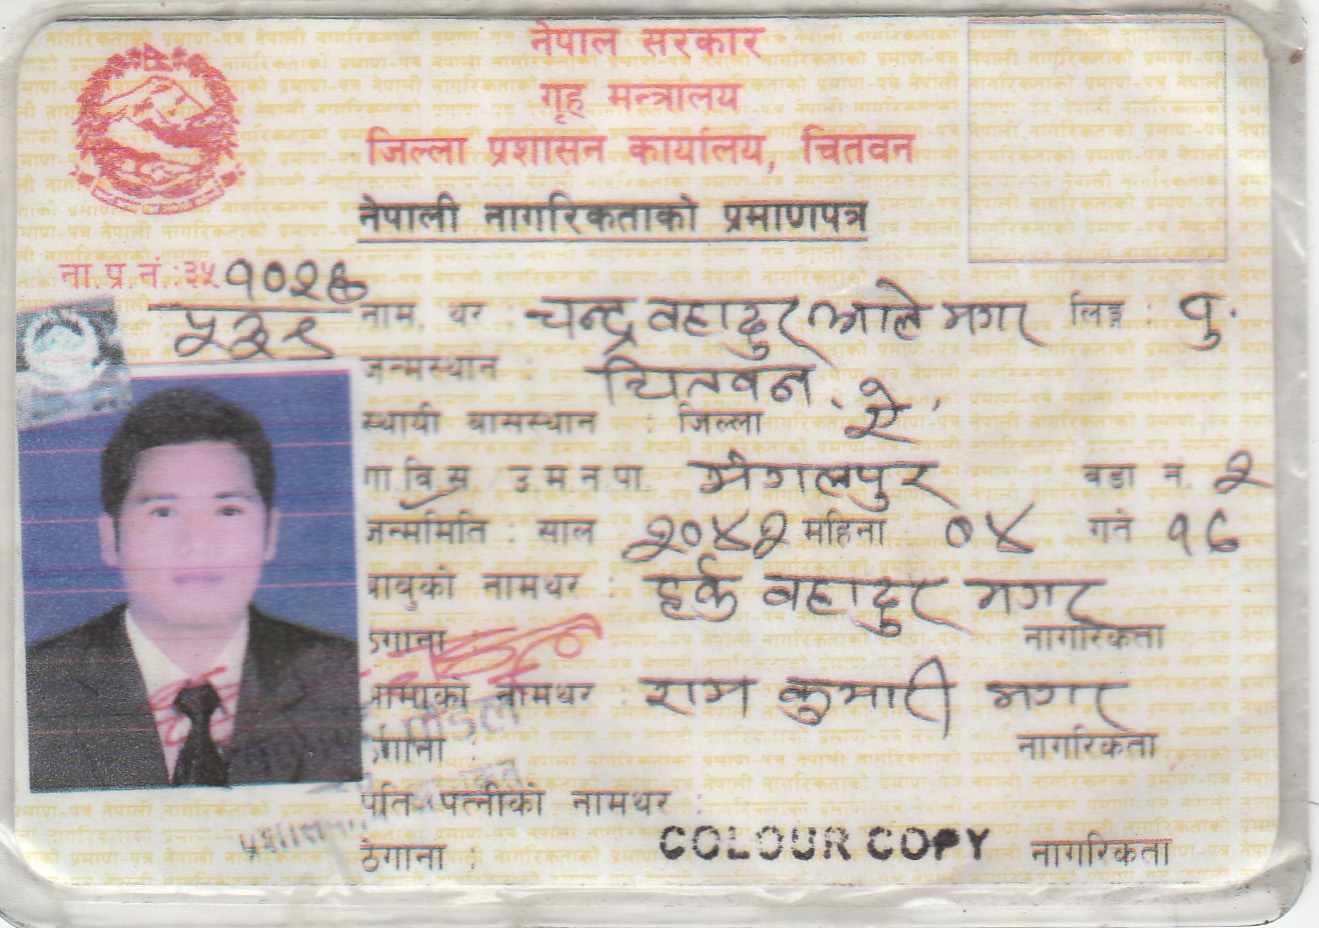 नेपाल सरकार
गृह मन्त्रालय
जिल्ला प्रशासन कार्यालय, चितवन
नेपाली नागरिकताको प्रमाणपत्र
ना.प्र.नं.:३५
५३२९
नाम, थर : चन्द्र वहादुर आले मगर लिङ्ग : पु.
जन्मस्थान : चितवन
स्थायी बासस्थान : जिल्ला ऐ
गा.वि.स. उ.म.न.पा. मंगलपुर वडा नं. २
जन्ममिति : साल २०४२ महिना ०४ गते १८
बाबुको नामथर : हर्क वहादुर मगर
ठेगाना : नागरिकता
आमाको नामथर : राम कुमारी मगर
ठेगाना : नागरिकता
पति/पत्नीको नामथर :
ठेगाना : नागरिकता
COLOUR COPY